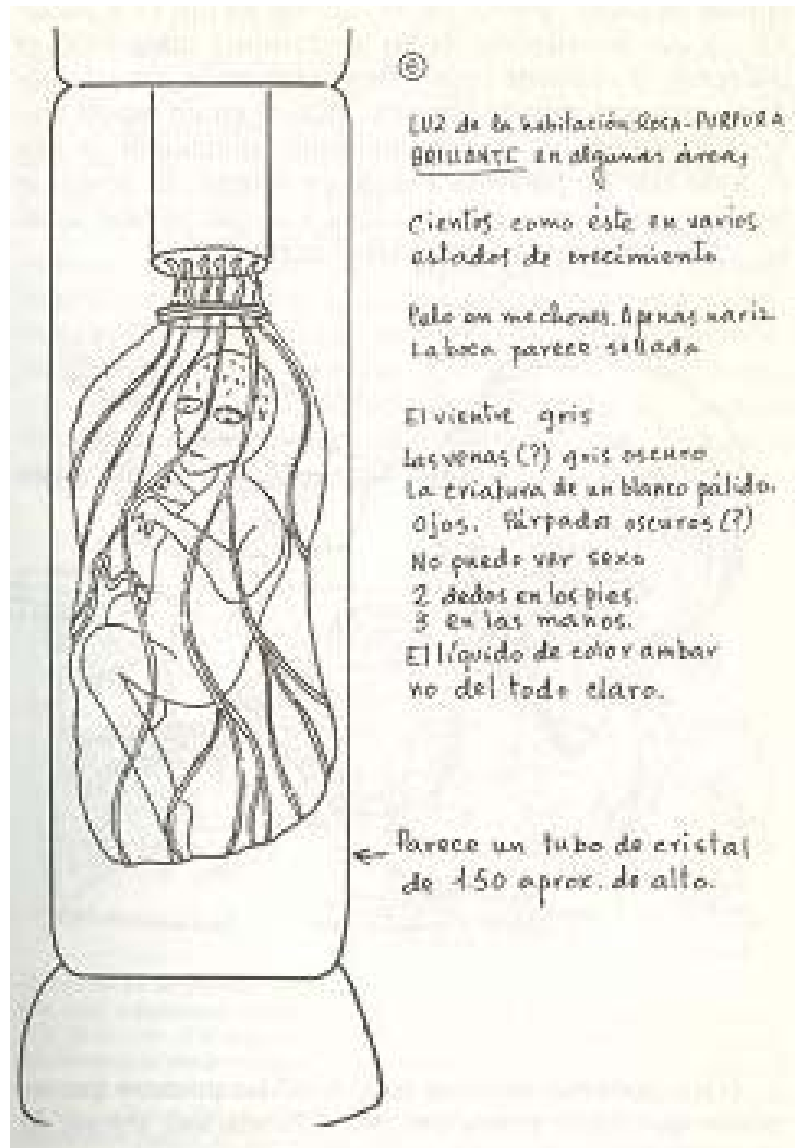 e
LUZ de la habitación Rosa-PURPURA
BRILLANTE en algunas áreas
Cientos como éste en varios
estados de crecimiento
Pelo en mechones. Apenas nariz
La boca parece sellada
El vientre gris
Las venas (?) gris oscuro
La criatura de un blanco pálido.
Ojos. Párpados oscuros (?)
No puedo ver sexo
2 dedos en los pies.
3 en las manos.
El líquido de color ambar
no del todo claro.
Parece un tubo de cristal
de 1.50 aprox. de alto.